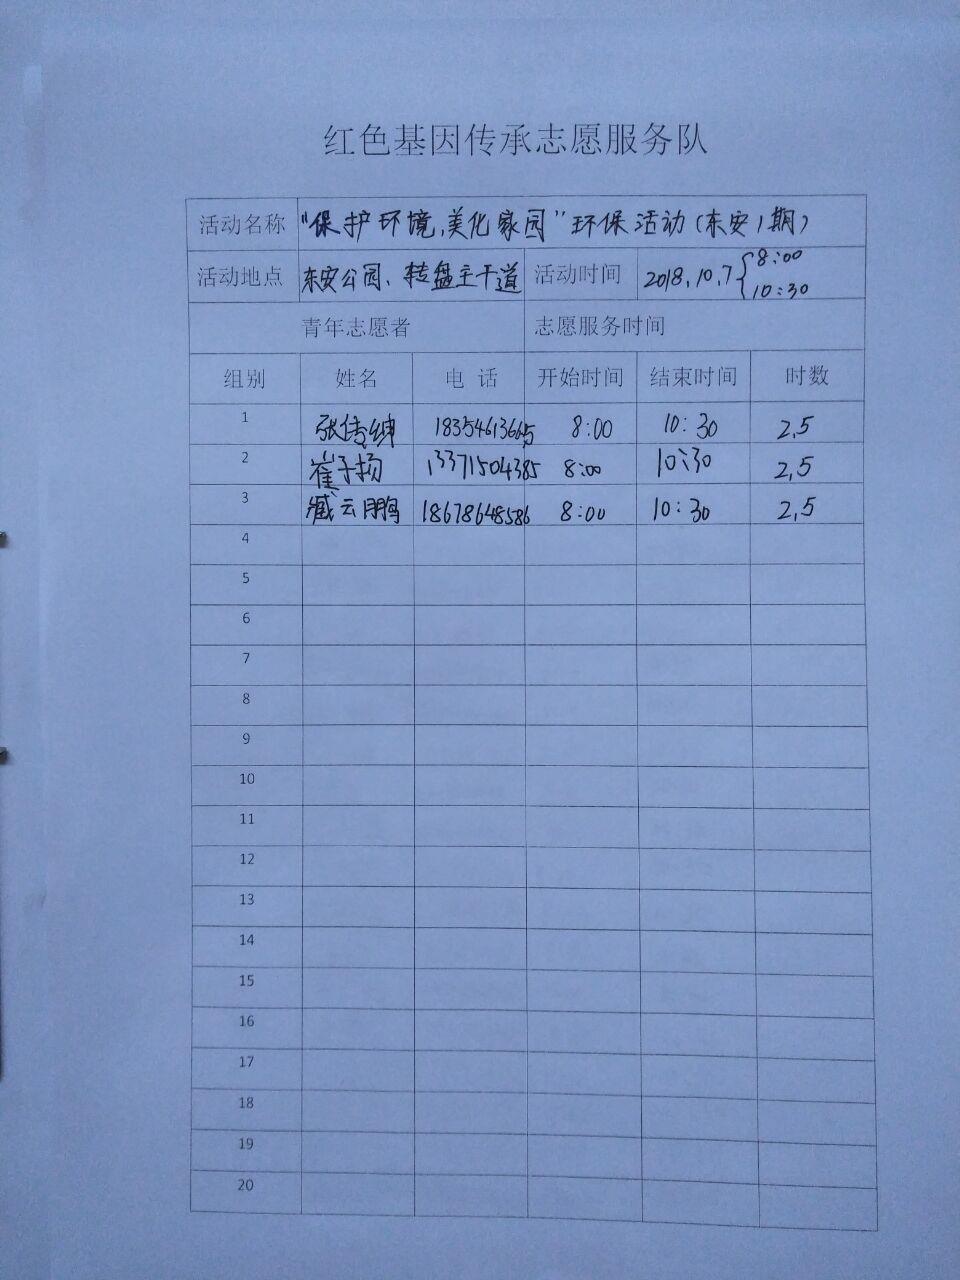 红色基因传承志愿服务队
活动名称 "保护环境,美化家园"环保活动(东安1期)
活动地点 东安公园、转盘主干道 活动时间 2018.10.7 { 8:00 10:30
青年志愿者 志愿服务时间
组别 姓名 电 话 开始时间 结束时间 时数
1 张传绅 18354613665 8:00 10:30 2,5
2 崔子扬 13371504385 8:00 10:30 2,5
3 臧云鹏 18678648586 8:00 10:30 2,5
4
5
6
7
8
9
10
11
12
13
14
15
16
17
18
19
20